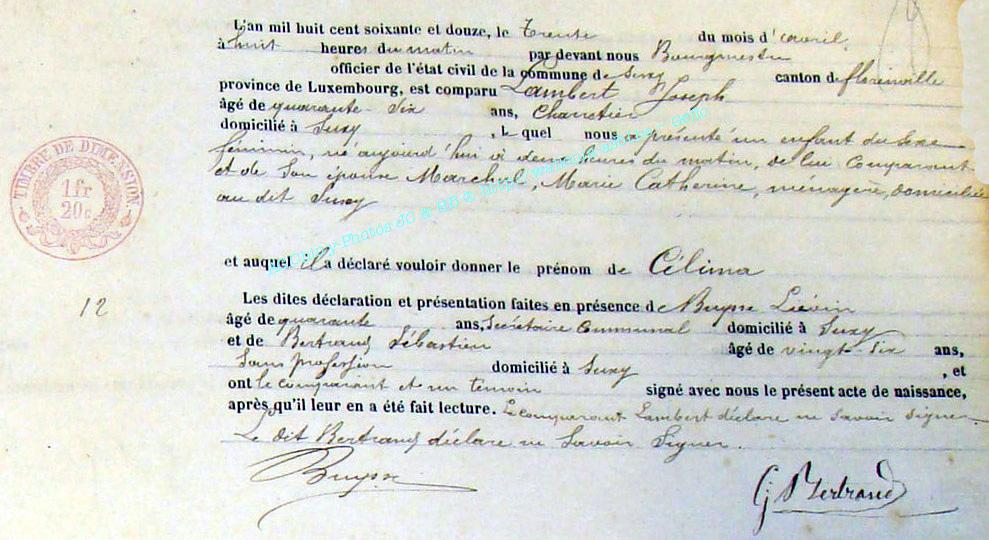 L'an mil huit cent soixante et douze, le Trente du mois d'avril,
à huit heures du matin par devant nous Bourgmestre
officier de l'état civil de la commune de Suxy canton de florenville
province de Luxembourg, est comparu Lambert Joseph
âgé de quarante-six ans, Charretier
domicilié à Suxy, le quel nous a présenté un enfant du sexe
féminin, né aujourd'hui à deux heures du matin, de lui comparant
et de son épouse Marchal, Marie Catherine, ménagère, domiciliée
au dit Suxy
TIMBRE DE DIMENSION
1 fr
20 c
et auquel il a déclaré vouloir donner le prénom de Célima
12
Les dites déclaration et présentation faites en présence de Buysse Liévin
âgé de quarante ans, Secrétaire Communal domicilié à Suxy
et de Bertrand Sébastien âgé de vingt-six ans,
sans profession domicilié à Suxy, et
ont le comparant et un témoin signé avec nous le présent acte de naissance,
après qu'il leur en a été fait lecture. Le comparant Lambert déclare ne savoir signer
Le dit Bertrand déclare ne savoir signer.
Buysse
G Bertrand